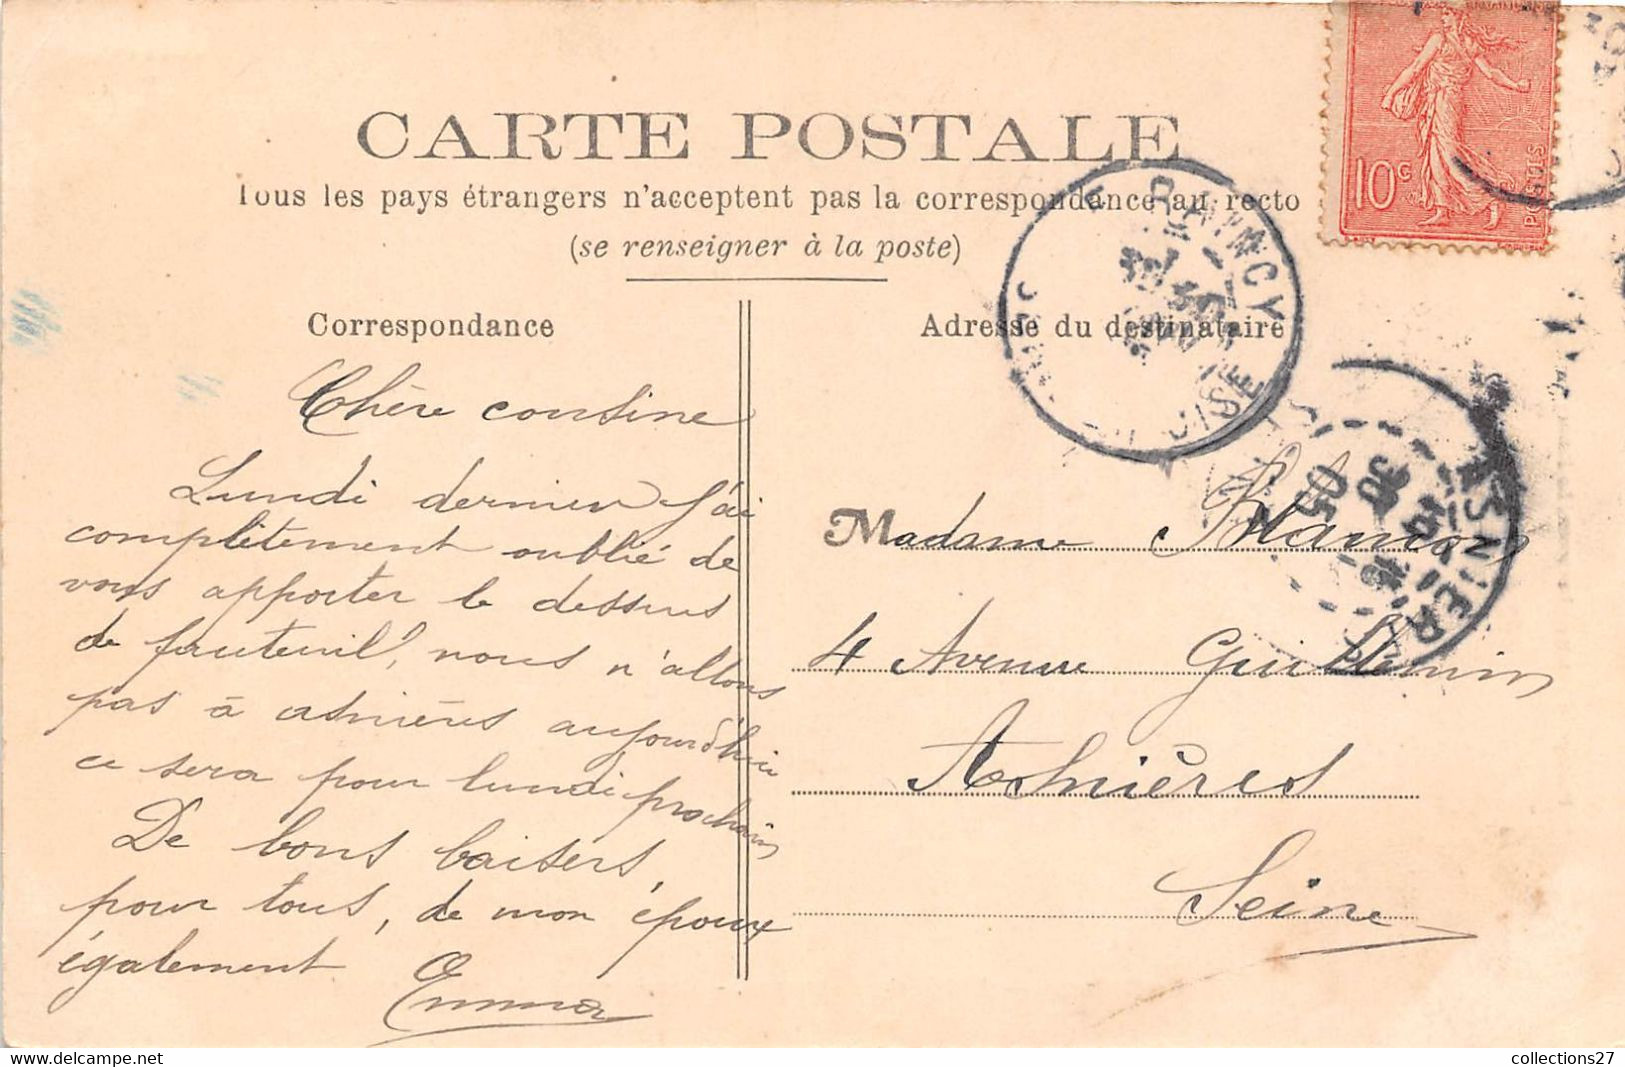 CARTE POSTALE
Tous les pays étrangers n'acceptent pas la correspondance au recto
(se renseigner à la poste)
10c
POSTES
Correspondance
Chère cousine
Lundi dernier j'ai
complètement oublié de
vous apporter le dessus
de fauteuil, nous n'allons
pas à asnières aujourd'hui
ce sera pour lundi prochain
De bons baisers,
pour tous, de mon époux
également Emma
Adresse du destinataire
RAINCY
OISE
ASNIER
30
05
Madame
4 Avenue Guillemin
Asnières
Seine
collections27